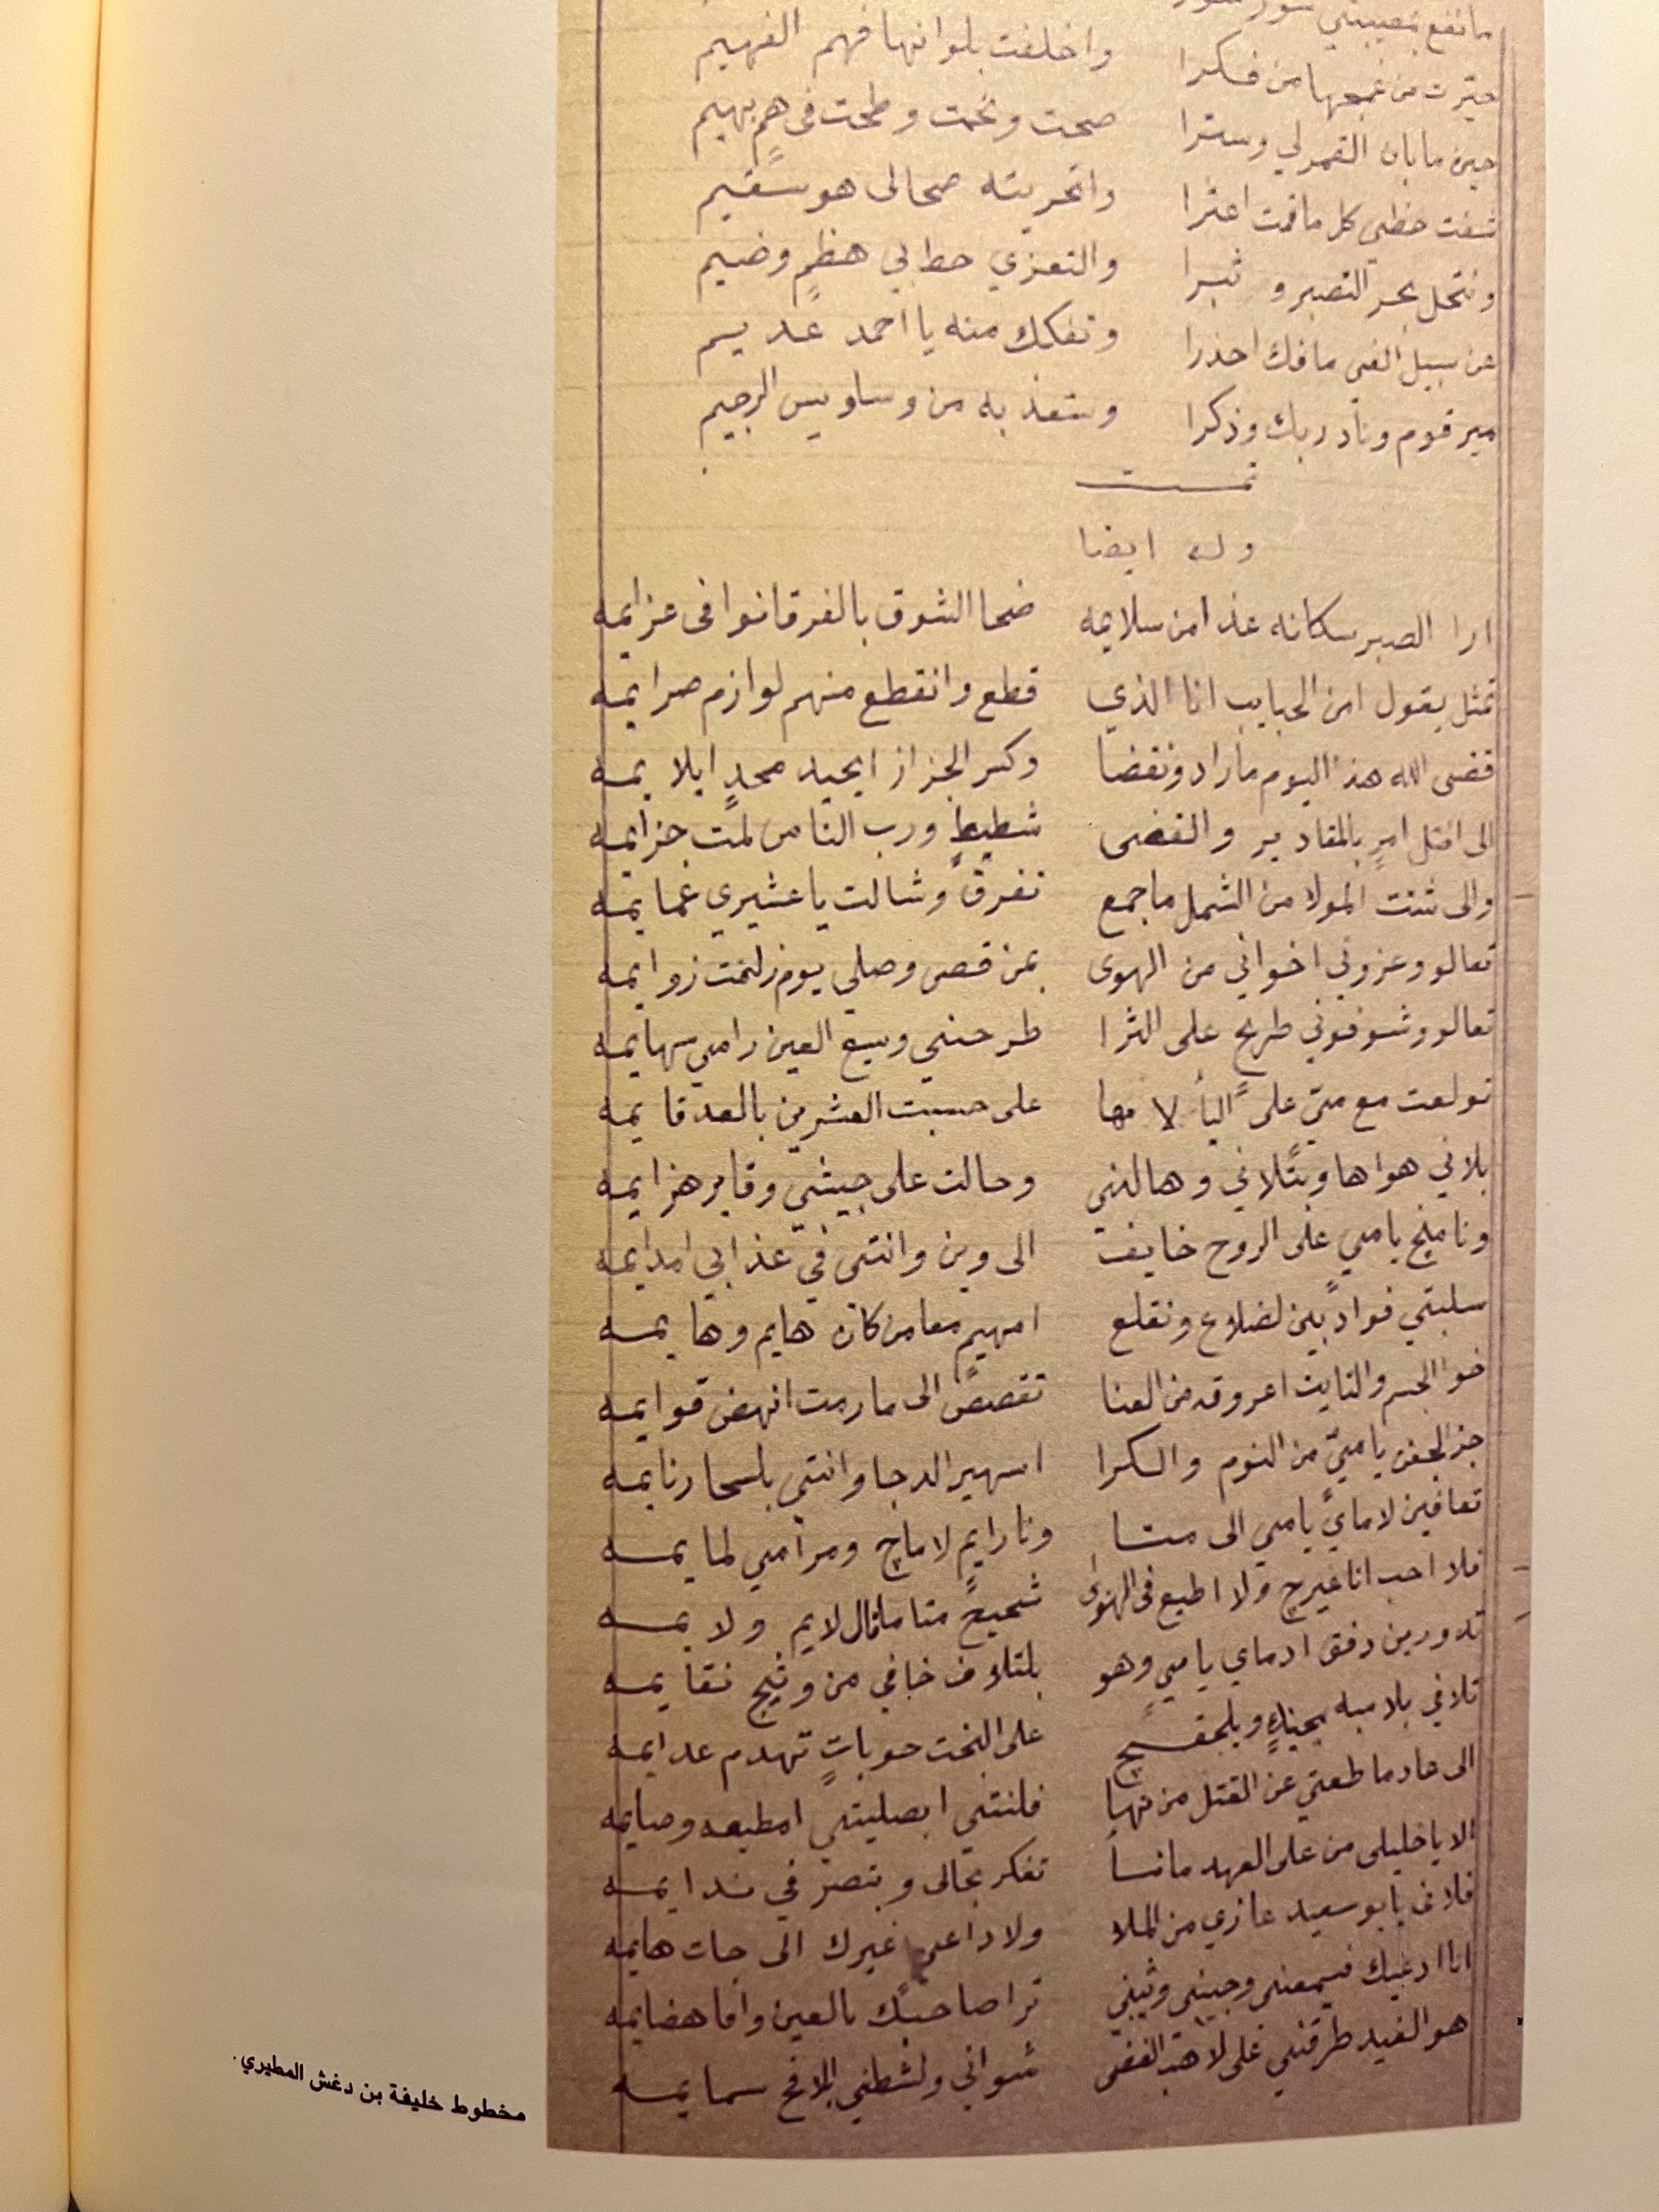 ما تقع بصيبتي
حيرت من غمجها من فكرا واخلفت بلوانها فهم الفهيم
حين ما بان القمر لي وسترا صحت ونحت وطحت في همٍ بهيم
شفت حظي كل ما قمت اعثرا واتحريته صحالى هو سقيم
ونتحل بحر التصبر و ثبرا والتعزي حط بي هظمٍ وضيم
عن سبيل الغي ما فك احذرا وتفكك منه يا احمد عديم
مير قوم وناد ربك وذكرا وستعذ به من وساويس الرجيم
تمت
وله ايضا
ارا الصبر سكانه غذا من سلايمه ضحا الشوق بالفرقا نوا في عزايمه
تمثل يقول ابن الحبايب انا الذي قطع وانقطع منهم لوازم صرايمه
قضى الله هذا اليوم ما راد ونقضا وكسر الجزاز ايحيد محدٍ ايلايمه
الى اقتل امرٍ بالمقادير والقضى شطيطٍ ورب الناس لمت جزايمه
والى شتت المولا من الشمل ما جمع تفرق وشالت يا عشيري غمايمه
تعالو وعزوني اخواني من الهوى بمن قص وصلي يوم زلخت زوايمه
تعالو وشوفوني طريح على الثرا طرحني وسيع العين رامي سهايمه
تولعت مع ميّ على اليا لامها على حسبت العشرين بالعد قايمه
بلاني هواها وبتلاني وهالني وحالت على جيشي وقابر هزايمه
ونا منج يا مي على الروح خايف الى وين وانتي في عذابي امدايمه
سلبتي فوادٍ بين لضلاع ونقلع امهيمٍ معا من كان هايم وهايمه
خوا الجسم والتايت اعروقه من العنا تقصص الى ما رمت انهض قوايمه
جز الجفن يا ميّ من النوم والكرا اسهير الدجا وانتي بلسحار نايمه
تعافين لاماي يا مي الى متا ونا رايمٍ لاماج ومرامي لمايمه
فلا احب انا غيرج ولا اطيع في الهوى شحيحٍ متا ما نال لايم ولايمه
تدورين دفق ادماي يا مي وهو بلتلاف خافي من وثيج نقايمه
تلافي بلا مبه بجيدٍ وبلجفيج على البخت حوباتٍ تهدم عدايمه
الى عاد ما طعتي عن القتل من نها فانتي ابصليتي امطيعه وصايمه
الا يا خليلي من على العهد ما نسا تفكر بحالى وبتصر في ندايمه
فلا لي يا بو سعيد عازي من الملا ولا داعي غيرك الى جات هايمه
انا ادعيك فسمعني وجيني وثيبني ترا صاحبك بالعين واقا هضايمه
هو الغيد طرقني على لاهب الغضى شواني ولشطني بلافح سمايمه
مخطوط خليفة بن دغش المطيري.